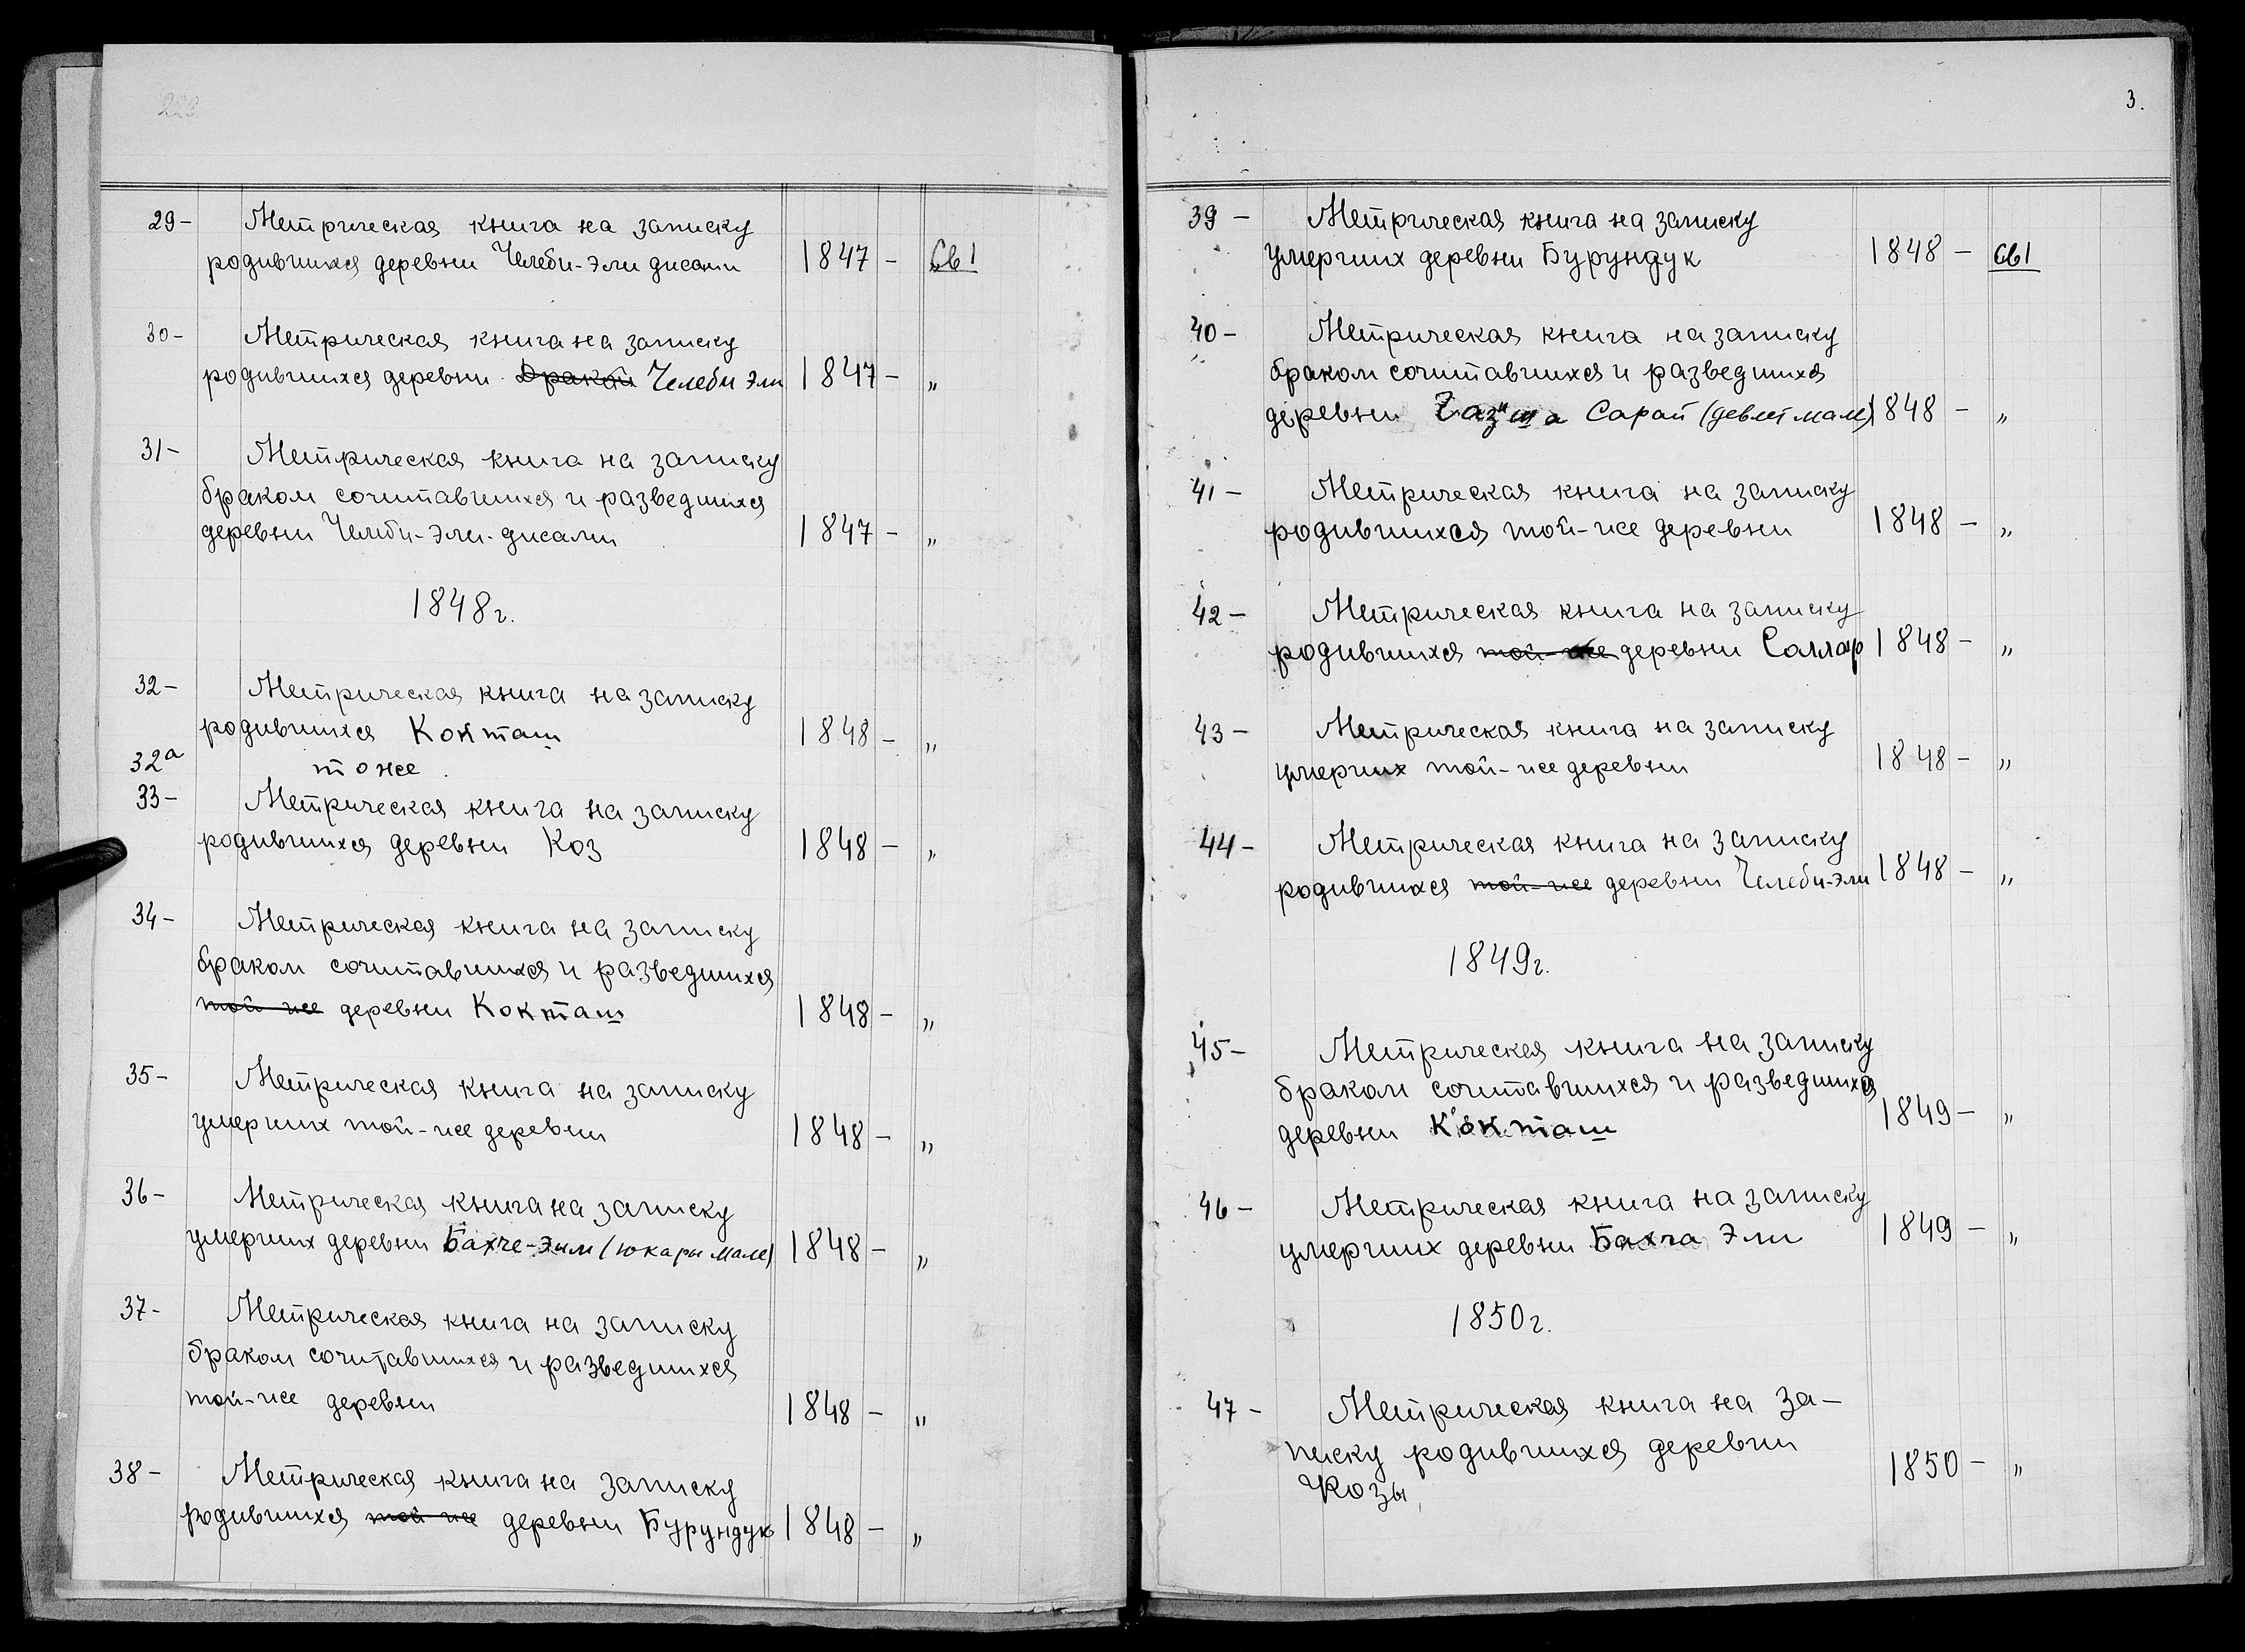 29- Метрическая книга на записку
родившихся деревни Челеби-Эли дисали 1847 - Св 1
30- Метрическая книга на записку
родившихся деревни Челеби Эли 1847 - "
31- Метрическая книга на записку
браком сочитавшихся и разведшихся
деревни Челеби-Эли-дисали 1847 - "
1848г.
32- Метрическая книга на записку
родившихся Кокташ 1848 - "
32а тоже
33- Метрическая книга на записку
родившихся деревни Коз 1848 - "
34- Метрическая книга на записку
браком сочитавшихся и разведшихся
той-же деревни Кокташ 1848 - "
35- Метрическая книга на записку
умерших той-же деревни 1848 - "
36- Метрическая книга на записку
умерших деревни Бахче-Эли (юкары мале) 1848 - "
37- Метрическая книга на записку
браком сочитавшихся и разведшихся
той-же деревни 1848 - "
38- Метрическая книга на записку
родившихся той же деревни Бурундук 1848 - "
3.
39 - Метрическая книга на записку
умерших деревни Бурундук 1848 - Св 1
40- Метрическая книга на записку
браком сочитавшихся и разведшихся
деревни Сарай (девлет мале) 1848 - "
41- Метрическая книга на записку
родившихся той-же деревни 1848 - "
42- Метрическая книга на записку
родившихся той-же деревни Саллар 1848 - "
43- Метрическая книга на записку
умерших той-же деревни 1848 - "
44- Метрическая книга на записку
родившихся той-же деревни Челеби-Эли 1848 - "
1849г.
45- Метрическая книга на записку
браком сочитавшихся и разведшихся
деревни Кокташ 1849 - "
46- Метрическая книга на записку
умерших деревни Бахча Эли 1849 - "
1850г.
47- Метрическая книга на за-
писку родившихся деревни
Козы 1850 - "